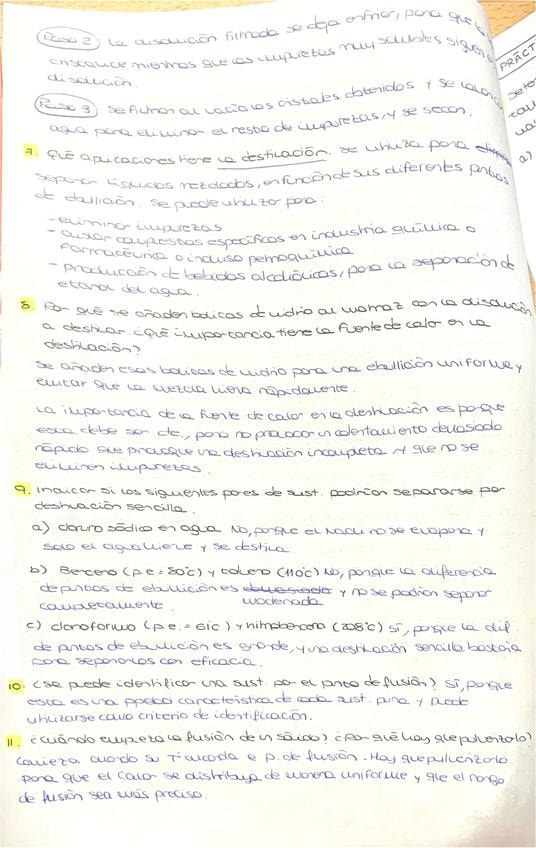 Paso 2 La disolución filtrada se deja enfriar, para que
cristalice mientras que las impurezas muy solubles siguen
disolución.
Paso 3 Se filtran al vacío los cristales obtenidos y se
agua para eliminar el resto de impurezas, y se secan.
7. Qué aplicaciones tiene la destilación. Se utiliza para
separar líquidos mezclados, en función de sus diferentes puntos
de ebullición. Se puede utilizar para:
- eliminar impurezas
- aislar compuestos específicos en industria química o
farmacéutica o incluso petroquímica
- Producción de bebidas alcohólicas, para la separación de
etanol del agua.
8. Por qué se añaden bolicas de vidrio al matraz con la disolución
a destilar ¿Qué importancia tiene la fuente de calor en la
destilación?
Se añaden esas bolicas de vidrio para una ebullición uniforme y
evitar que la mezcla hierva rápidamente.
La importancia de la fuente de calor en la destilación es porque
esta debe ser de, para no provocar un calentamiento demasiado
rápido que provoque una destilación incompleta y que no se
eliminen impurezas.
9. Indicar si los siguientes pares de sust. podrían separarse por
destilación sencilla.
a) cloruro sódico en agua No, porque el NaCl no se evapora y
solo el agua hierve y se destila.
b) Benceno (p.e = 80°c) y tolueno (110°c) No, porque la diferencia
de puntos de ebullición es moderada y no se podrían separar
completamente.
c) cloroformo (p.e. = 61c) y nitrobenceno (208°c) Sí, porque la dif.
de puntos de ebullición es grande, y una destilación sencilla bastaría
para separarlos con eficacia.
10. ¿Se puede identificar una sust. por el punto de fusión? Sí, porque
esta es una ppdad característica de cada sust. pura y puede
utilizarse como criterio de identificación.
11. ¿Cuándo empieza la fusión de un sólido? ¿Por qué hay que pulverizarlo?
Comieza cuando su T alcanza e p. de fusión. Hay que pulverizarlo
para que el calor se distribuya de manera uniforme y que el rango
de fusión sea más preciso.
PRÁCT
a)